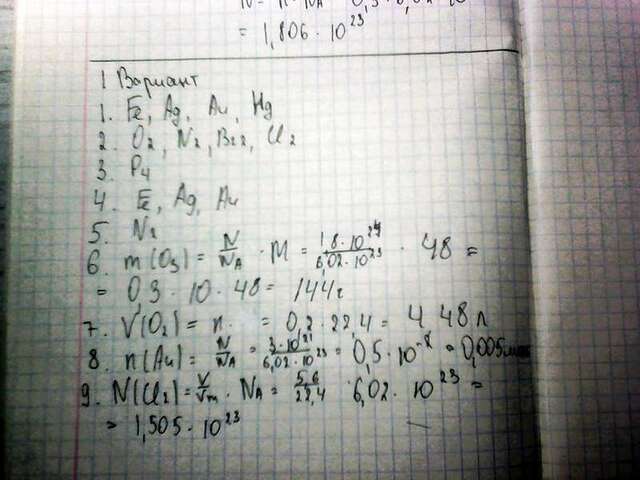 = 1,806 · 10^23
1 Вариант
1. Fe, Ag, Au, Hg
2. O2, N2, Br2, Cl2
3. P4
4. Fe, Ag, Au
5. N2
6. m(O3) = N/NA · M = 1,8 · 10^24/6,02 · 10^23 · 48 =
= 0,3 · 10 · 48 = 144г
7. V(O2) = n · = 0,2 · 22,4 = 4,48 л
8. n(Au) = N/NA = 3 · 10^21/6,02 · 10^23 = 0,5 · 10^-2 = 0,005
9. N(Cl2) = V/Vm · NA = 5,6/22,4 · 6,02 · 10^23 =
= 1,505 · 10^23